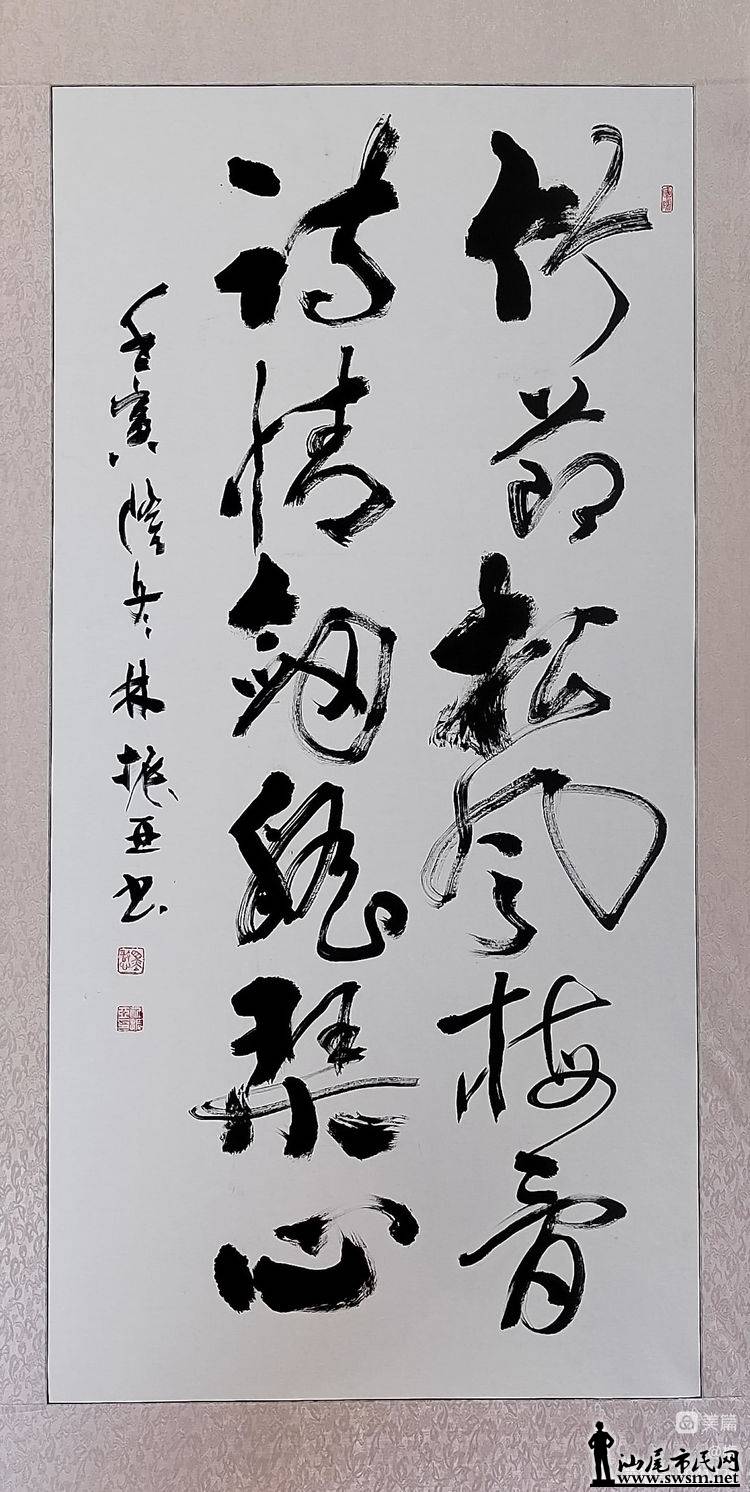 竹節松風梅骨
诗情劍膽琴心
寅隆冬林振亚书
美篇
汕尾市民网
www.swsm.net